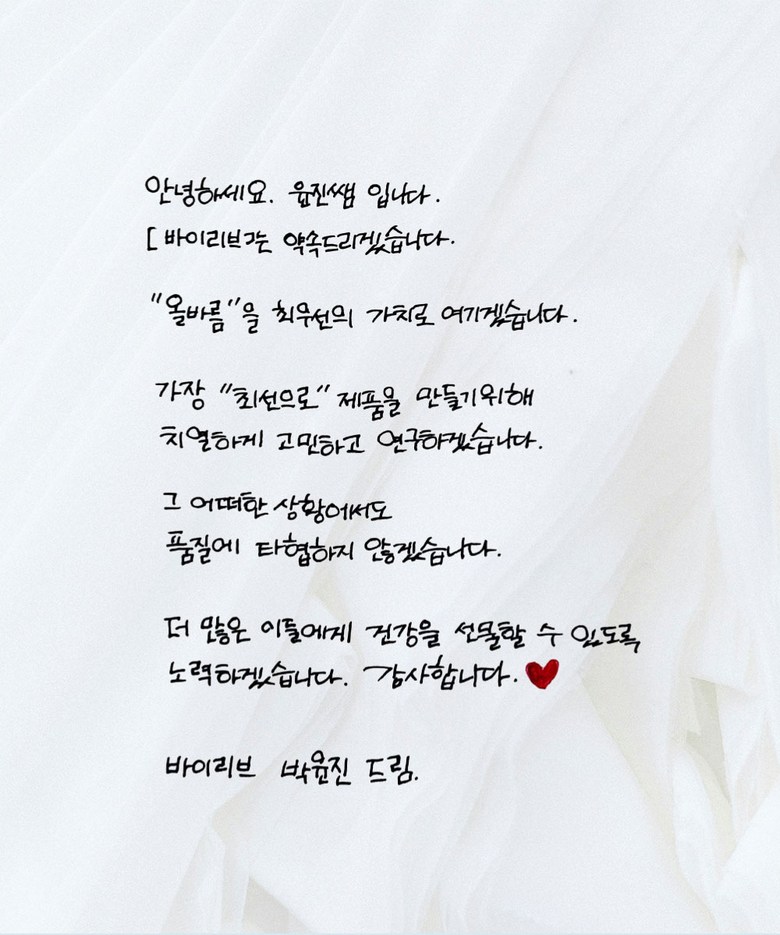 안녕하세요. 윤진쌤 입니다.
[바이리브]는 약속드리겠습니다.
"올바름"을 최우선의 가치로 여기겠습니다.
가장 "최선으로" 제품을 만들기위해
치열하게 고민하고 연구하겠습니다.
그 어떠한 상황에서도
품질에 타협하지 않겠습니다.
더 많은 이들에게 건강을 선물할 수 있도록
노력하겠습니다. 감사합니다.
바이리브 박윤진 드림.